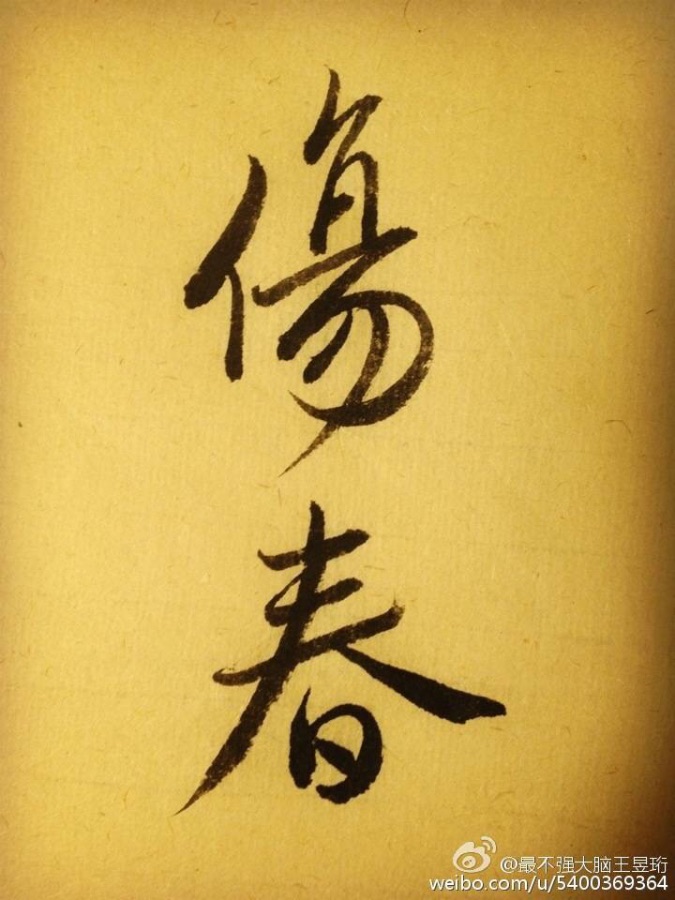 傷春
@最不强大脑王昱珩
weibo.com/u/5400369364